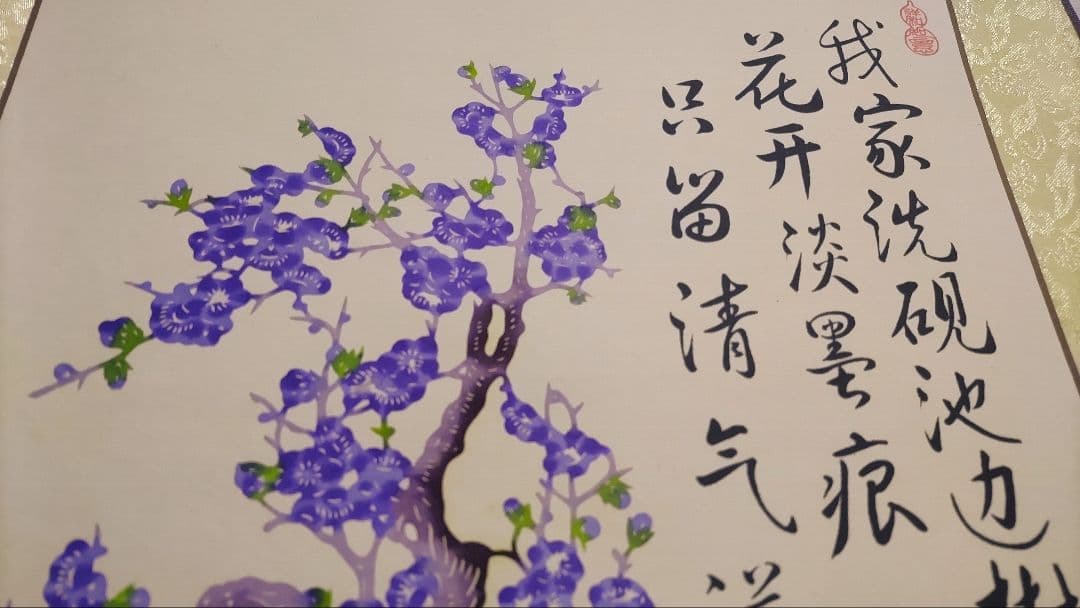 我家洗砚池边
花开淡墨痕
只留清气